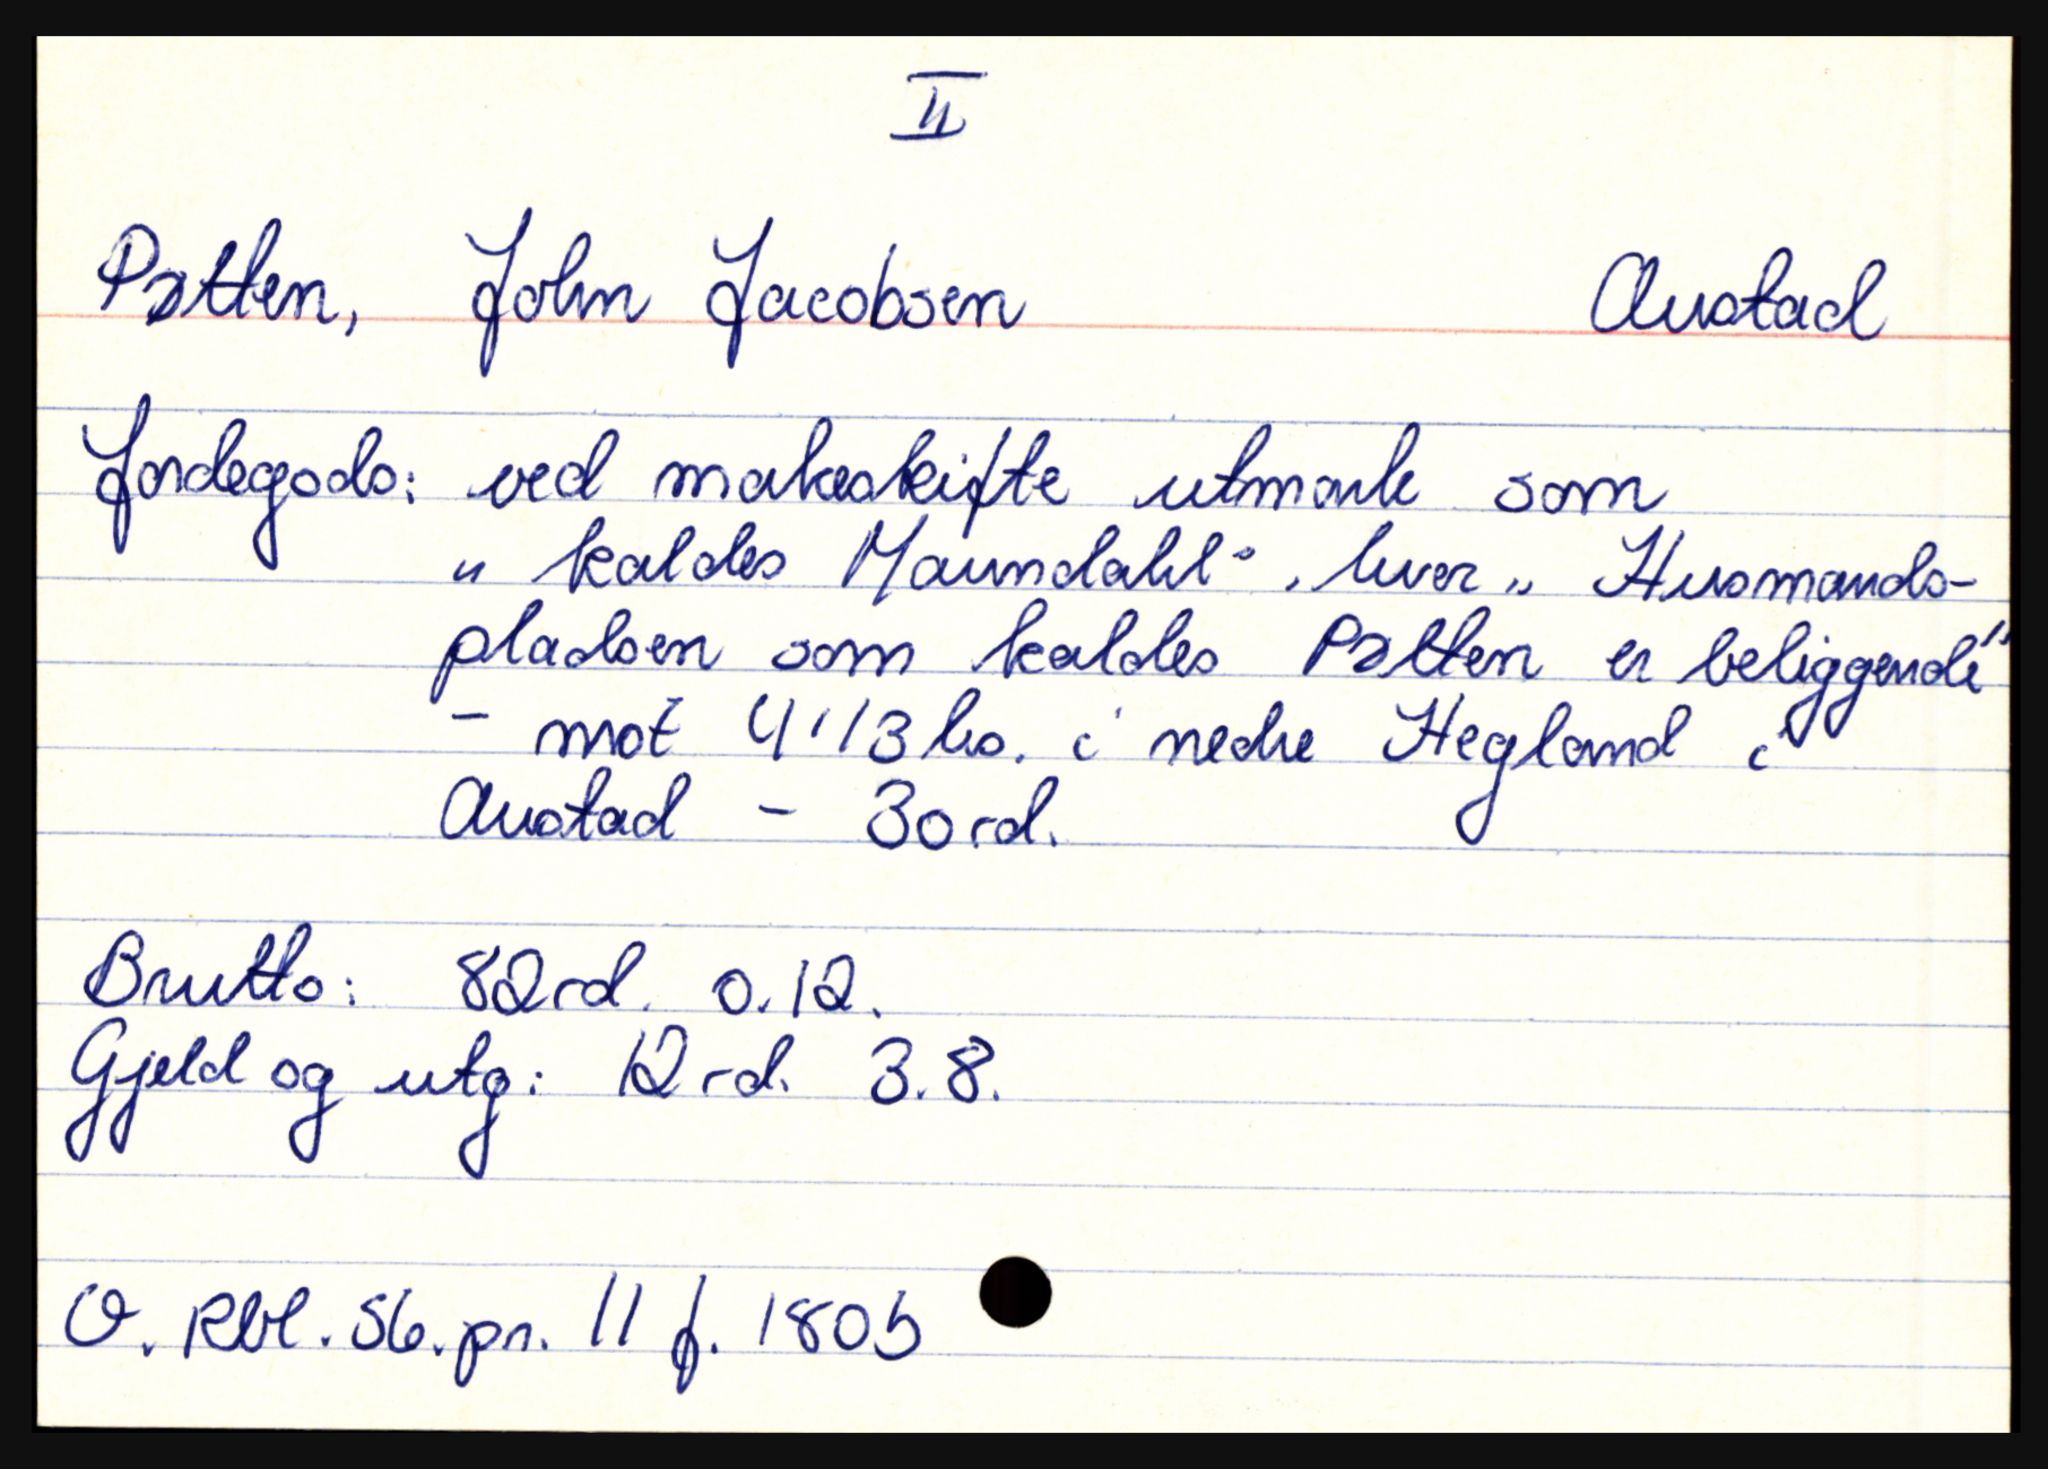 II
Pøtten, John Jacobsen Austad
Jordegods: ved makeskifte utmark som
„ kaldes Maundahl“. hvor „ Husmands-
pladsen som kaldes Pøtten er beliggende"
- mot 4 1/3 hs. i nedre Hegland i
Austad - 30 rd.
Brutto: 82 rd. 0. 12.
Gjeld og utg: 12 rd. 3. 8.
O. Rbl. 56. pr. 11 f. 180b